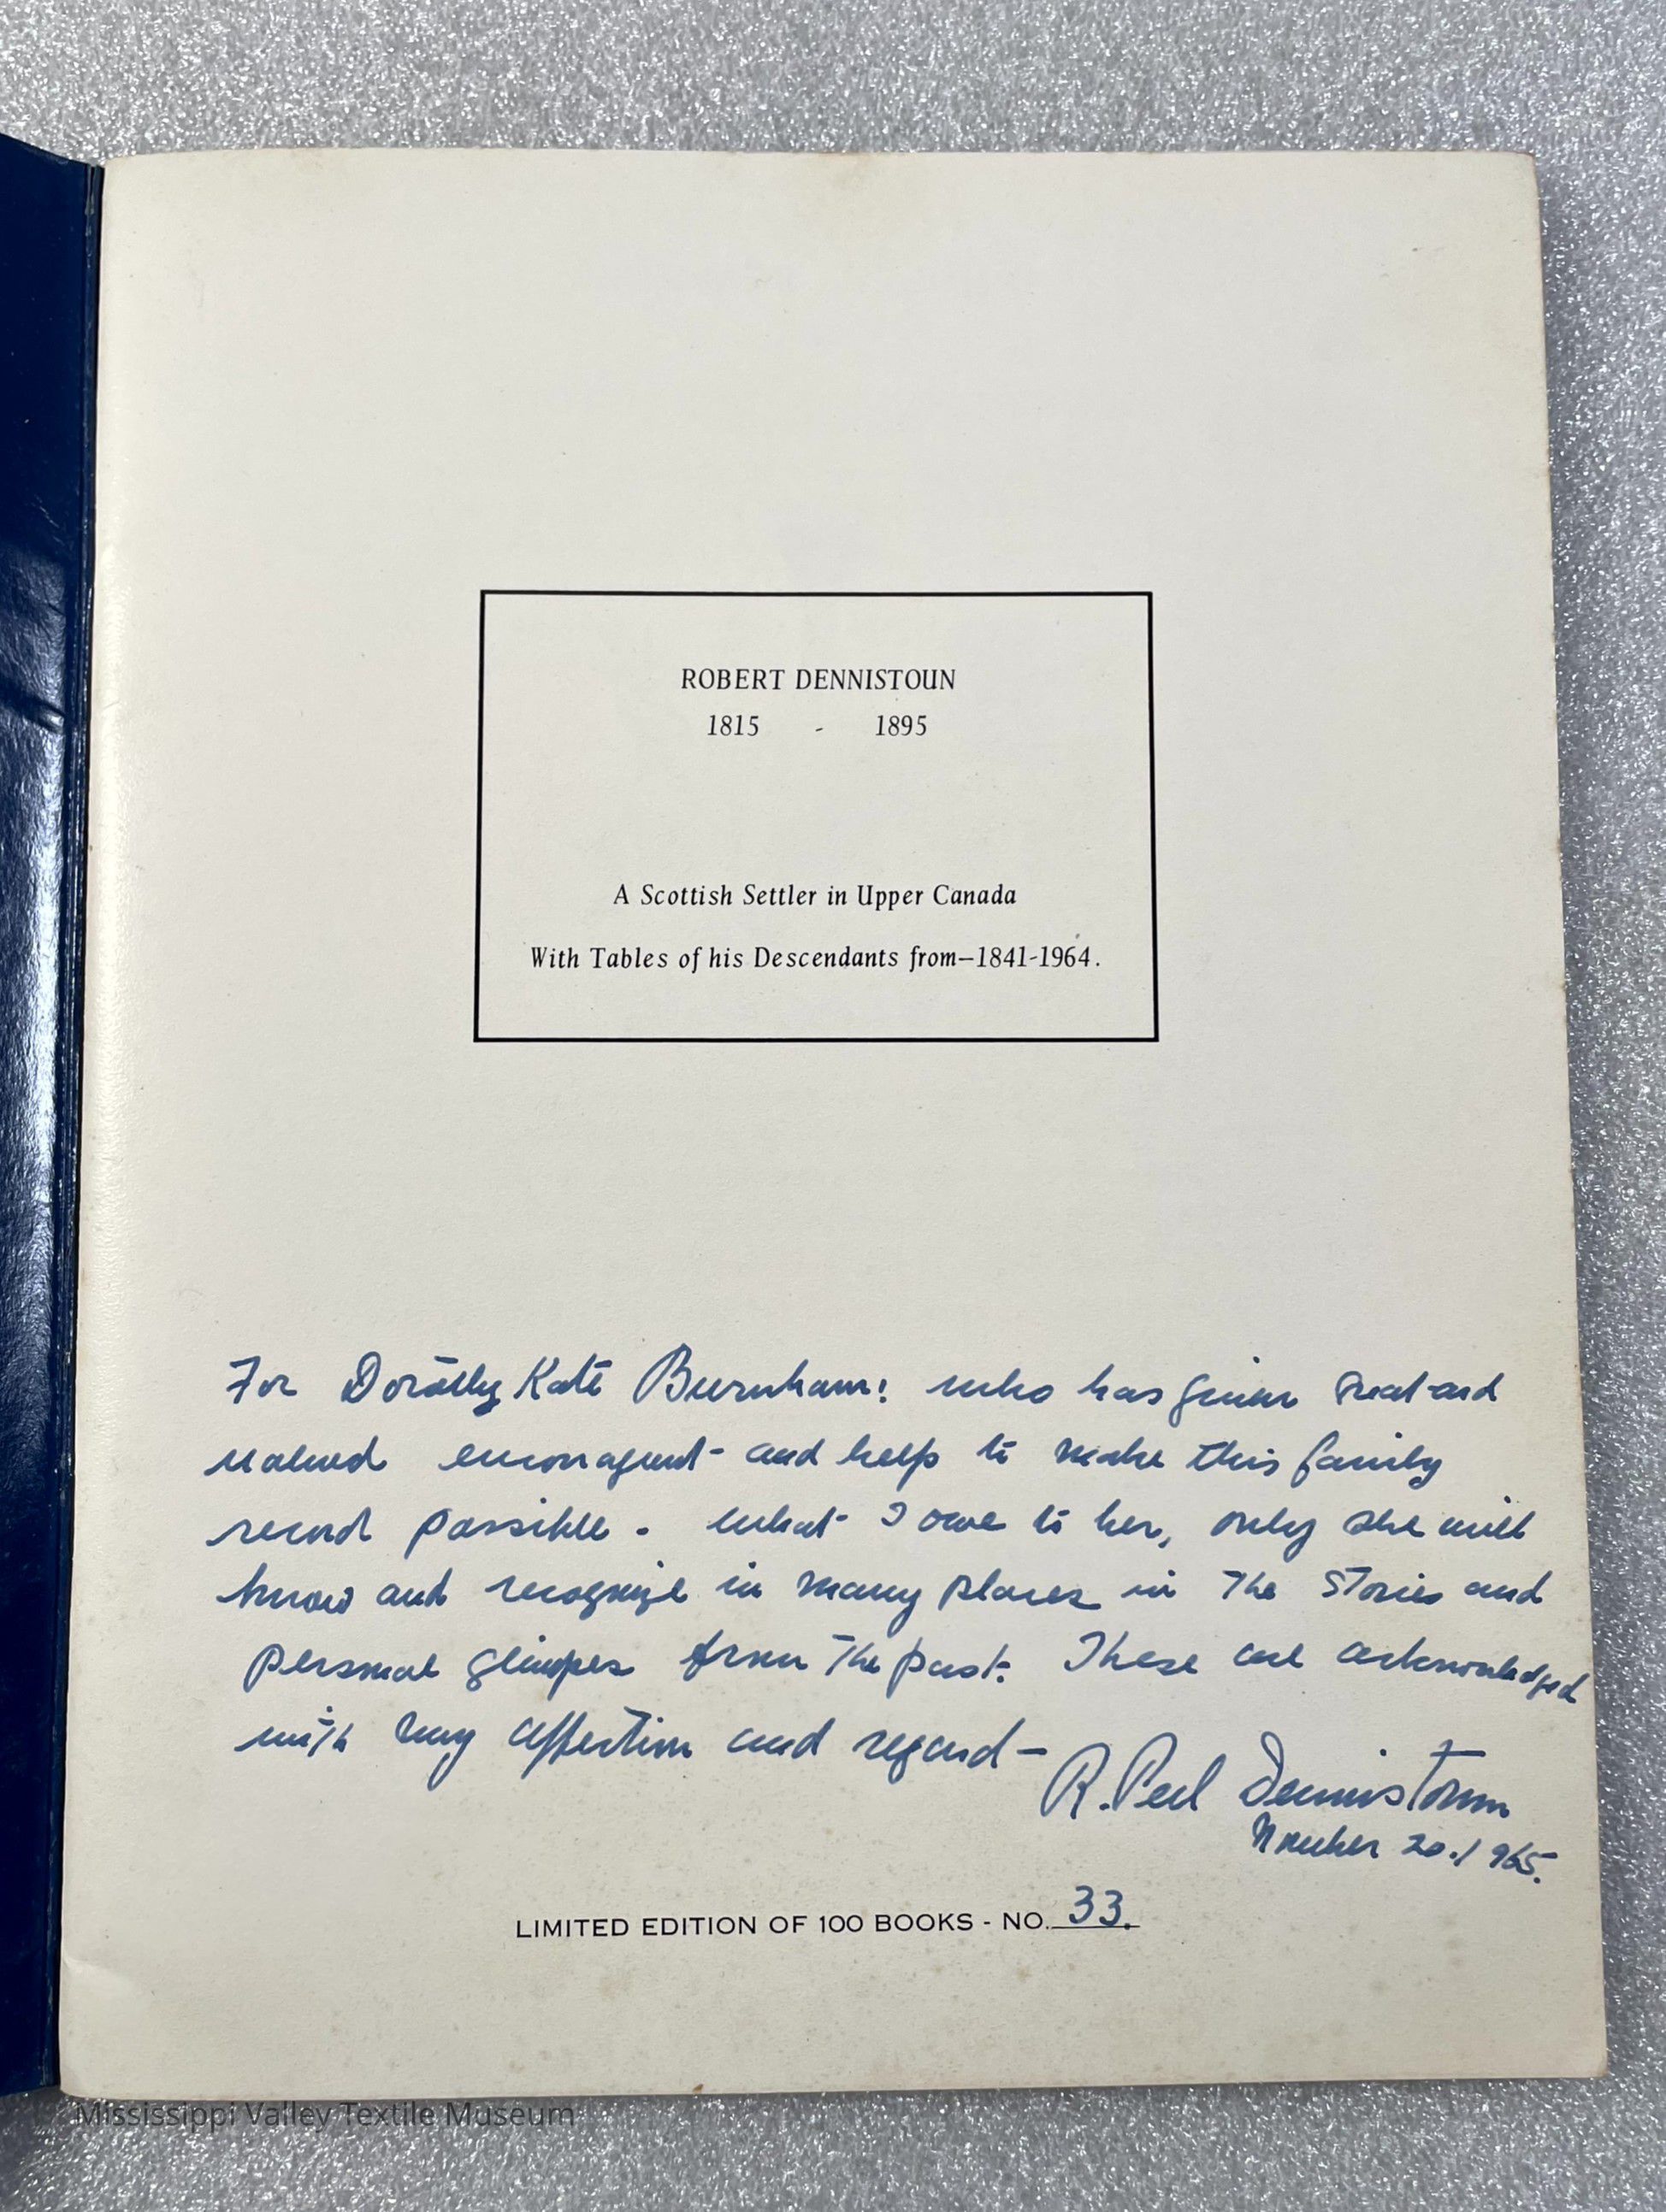 ROBERT DENNISTOUN
1815 - 1895
A Scottish Settler in Upper Canada
With Tables of his Descendants from—1841-1964.
For Dorothy Kate Burnham: who has given great and
valued encouragement and help to make this family
record possible. What I owe to her, only she will
know and recognize in many places in the stories and
personal glimpses from the past. These are acknowledged
with my affection and regard —
R. Peel Dennistoun
November 20. 1965.
LIMITED EDITION OF 100 BOOKS - NO. 33.
Mississippi Valley Textile Museum